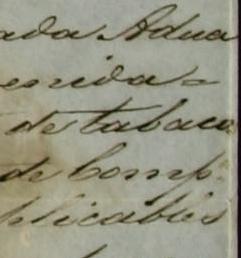 ada Adua
enida=
de tabaco
de Comp.
plicables